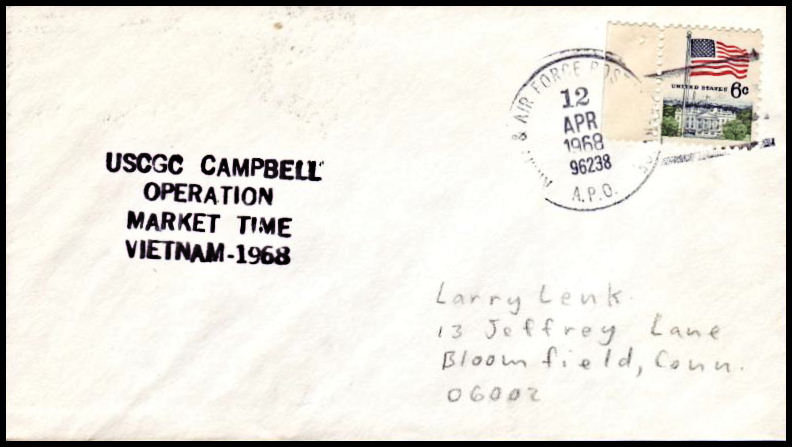 UNITED STATES 6c
& AIR FORCE POST
12
APR
1968
96238
A.P.O.
USCGC CAMPBELL
OPERATION
MARKET TIME
VIETNAM-1968
Larry Lenk.
13 Jeffrey Lane
Bloomfield, Conn.
06002